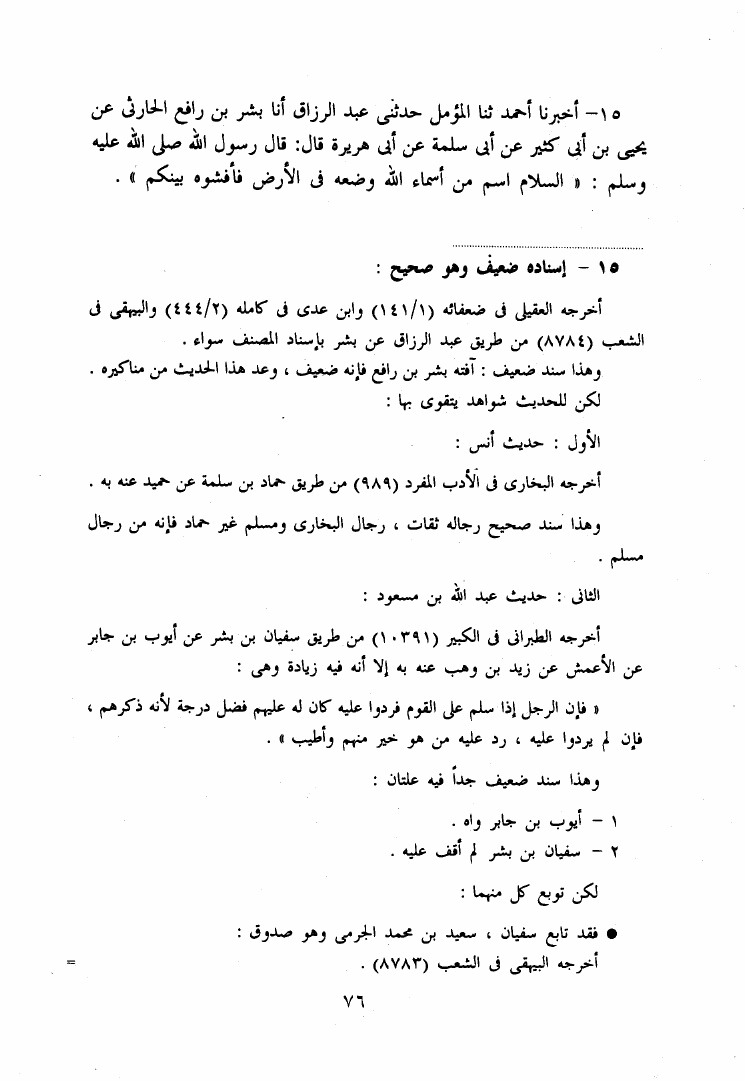 ١٥- أخبرنا أحمد ثنا المؤمل حدثنى عبد الرزاق أنا بشر بن رافع الحارثى عن
يحيى بن أبى كثير عن أبى سلمة عن أبى هريرة قال: قال رسول الله صلى الله عليه
وسلم : « السلام اسم من أسماء الله وضعه فى الأرض فأفشوه بينكم » .
١٥ - إسناده ضعيف وهو صحيح :
أخرجه العقيلى فى ضعفائه (١٤١/١) وابن عدى فى كامله (٤٤٤/٢) والبيهقى فى
الشعب (٨٧٨٤) من طريق عبد الرزاق عن بشر بإسناد المصنف سواء .
وهذا سند ضعيف : آفته بشر بن رافع فإنه ضعيف ، وعد هذا الحديث من مناكيره .
لكن للحديث شواهد يتقوى بها :
الأول : حديث أنس :
أخرجه البخارى فى الأدب المفرد (٩٨٩) من طريق حماد بن سلمة عن حميد عنه به .
وهذا سند صحيح رجاله ثقات ، رجال البخارى ومسلم غير حماد فإنه من رجال
مسلم .
الثانى : حديث عبد الله بن مسعود :
أخرجه الطبرانى فى الكبير (١٠٣٩١) من طريق سفيان بن بشر عن أيوب بن جابر
عن الأعمش عن زيد بن وهب عنه به إلا أنه فيه زيادة وهى :
« فإن الرجل إذا سلم على القوم فردوا عليه كان له عليهم فضل درجة لأنه ذكرهم ،
فإن لم يردوا عليه ، رد عليه من هو خير منهم وأطيب » .
وهذا سند ضعيف جداً فيه علتان :
١ - أيوب بن جابر واه .
٢ - سفيان بن بشر لم أقف عليه .
لكن توبع كل منهما :
● فقد تابع سفيان ، سعيد بن محمد الجرمى وهو صدوق :
أخرجه البيهقى فى الشعب (٨٧٨٣) . =
٧٦